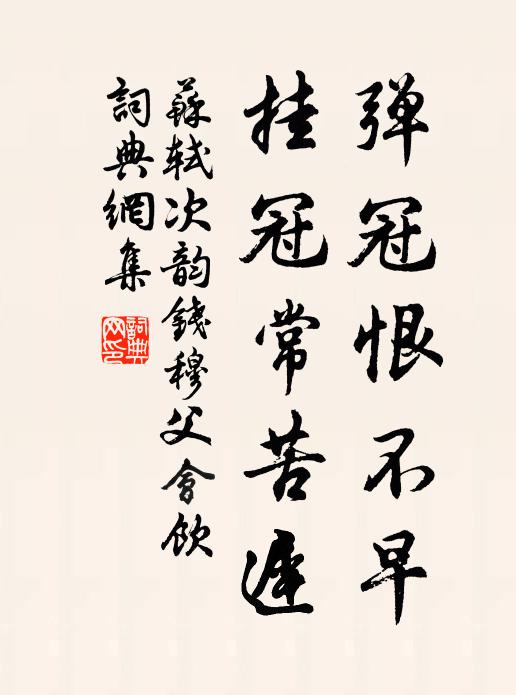 弹冠恨不早
挂冠常苦遲
蘇軾次韵錢穆父會飲
詞典網集
詞典网印